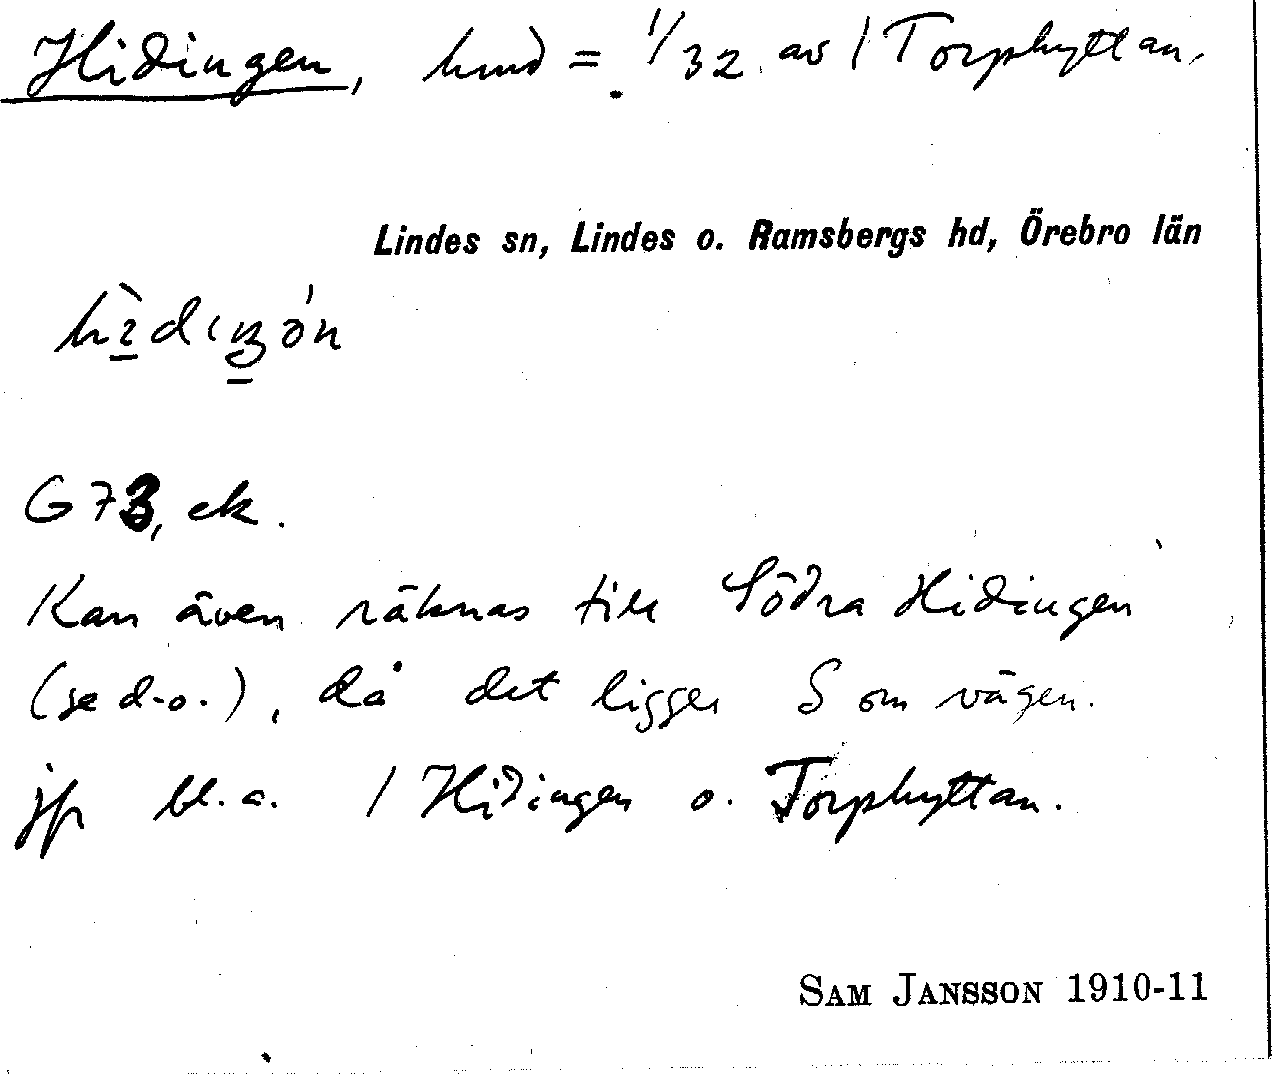 Hidingen, hmd = 1/32 av / Torphyttan.
Lindes sn, Lindes o. Ramsbergs hd, Örebro län
G73, ek.
Kan även räknas till Södra Hidingen
(se d.o.), då det ligger S om vägen.
jfr bl.a. / Hidingen o. Torphyttan.
SAM JANSSON 1910-11